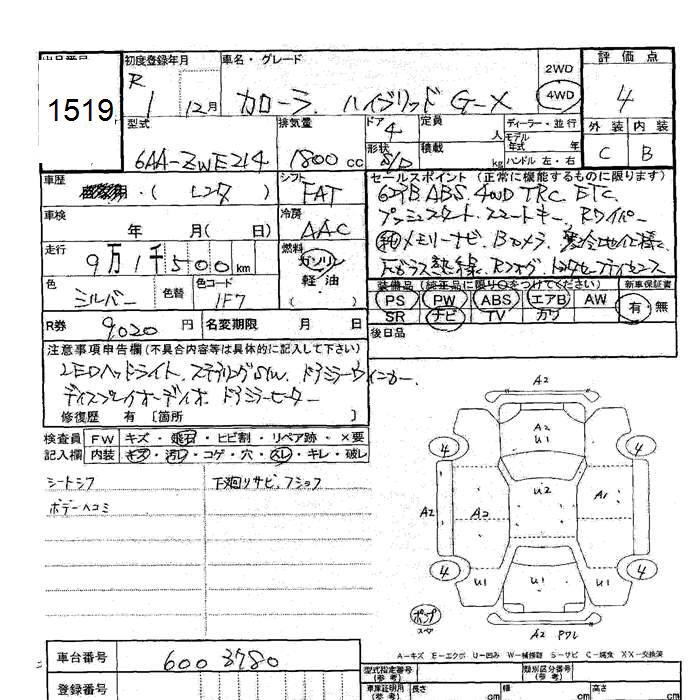 1519
初度登録年月 車名・グレード 2WD 評価点
R 1 12月 カローラ ハイブリッド G-X 4WD 4
型式 排気量 ドア 4 定員 人 ディーラー・並行 外装 内装
6AA-ZWE214 1800cc 形状 S/D 積載 kg モデル年式 年 C B
ハンドル 左・右
車歴 ( レンタ ) シフト FAT セールスポイント (正常に機能するものに限ります)
6エアB. ABS. 4WD TRC. ETC.
車検 年 月( 日) 冷房 AAC プッシュスタート. スマートキー. Rワイパー
走行 9万1千500km 燃料 ガソリン 純 メモリーナビ. Bカメラ. 寒冷地仕様
軽油 ( ) Fガラス熱線. Rフォグ. トヨタセーフティセンス
色 シルバー 色替 色コード 1F7 装備品(純正品に限り○をつけてください) 新車保証書
PS PW ABS エアB AW 有・無
SR ナビ TV カワ
R券 9020円 名変期限 月 日 後日品
注意事項申告欄(不具合内容等は具体的に記入して下さい)
LEDヘッドライト. ステアリングSW. ドアミラーウインカー.
ディスプレイオーディオ. ドアミラーヒーター
修復歴 有 [箇所 ]
検査員 FW キズ・飛石・ヒビ割・リペア跡・×要
記入欄 内装 キズ・汚レ・コゲ・穴・スレ・キレ・破レ
シートシワ 下廻リサビ. フショク
ボデーヘコミ
A2
A2 U1
4 4
U2
A2 A2 A1
4 4
U1 U1 U1
ポンプ
スペア
A2 PクレA
A-キズ E-エクボ U-凹み W-補修跡 S-サビ C-腐食 XX-交換済
車台番号 6003780
型式指定番号(参考) 類別区分番号(参考)
登録番号 車庫証明用(参考) 長さ cm 幅 cm 高さ cm